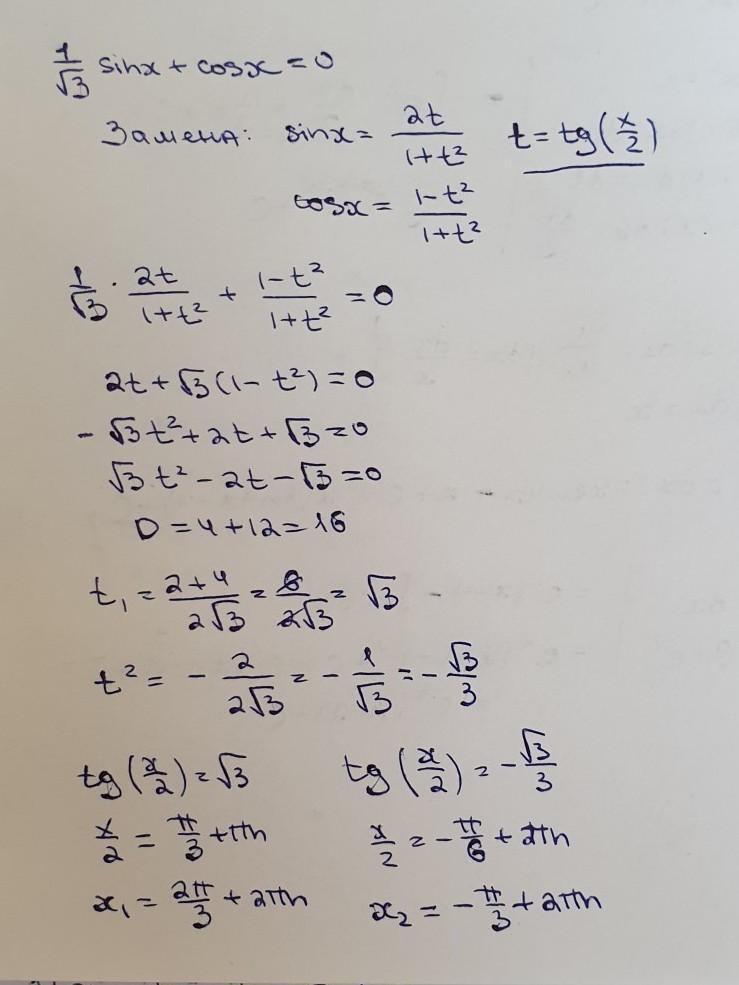 1/√3 sinx + cosx = 0
Замена: sinx = 2t/(1+t²) t = tg(x/2)
cosx = (1-t²)/(1+t²)
1/√3 · 2t/(1+t²) + (1-t²)/(1+t²) = 0
2t + √3(1-t²) = 0
- √3t² + 2t + √3 = 0
√3t² - 2t - √3 = 0
D = 4 + 12 = 16
t₁ = (2+4)/(2√3) = 6/(2√3) = √3
t² = - 2/(2√3) = - 1/√3 = - √3/3
tg(x/2) = √3 tg(x/2) = - √3/3
x/2 = π/3 + πn x/2 = - π/6 + πn
x₁ = 2π/3 + 2πn x₂ = - π/3 + 2πn